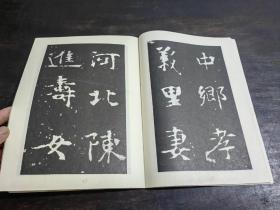 中鄉孝
義里妻
河北陳
進壽女